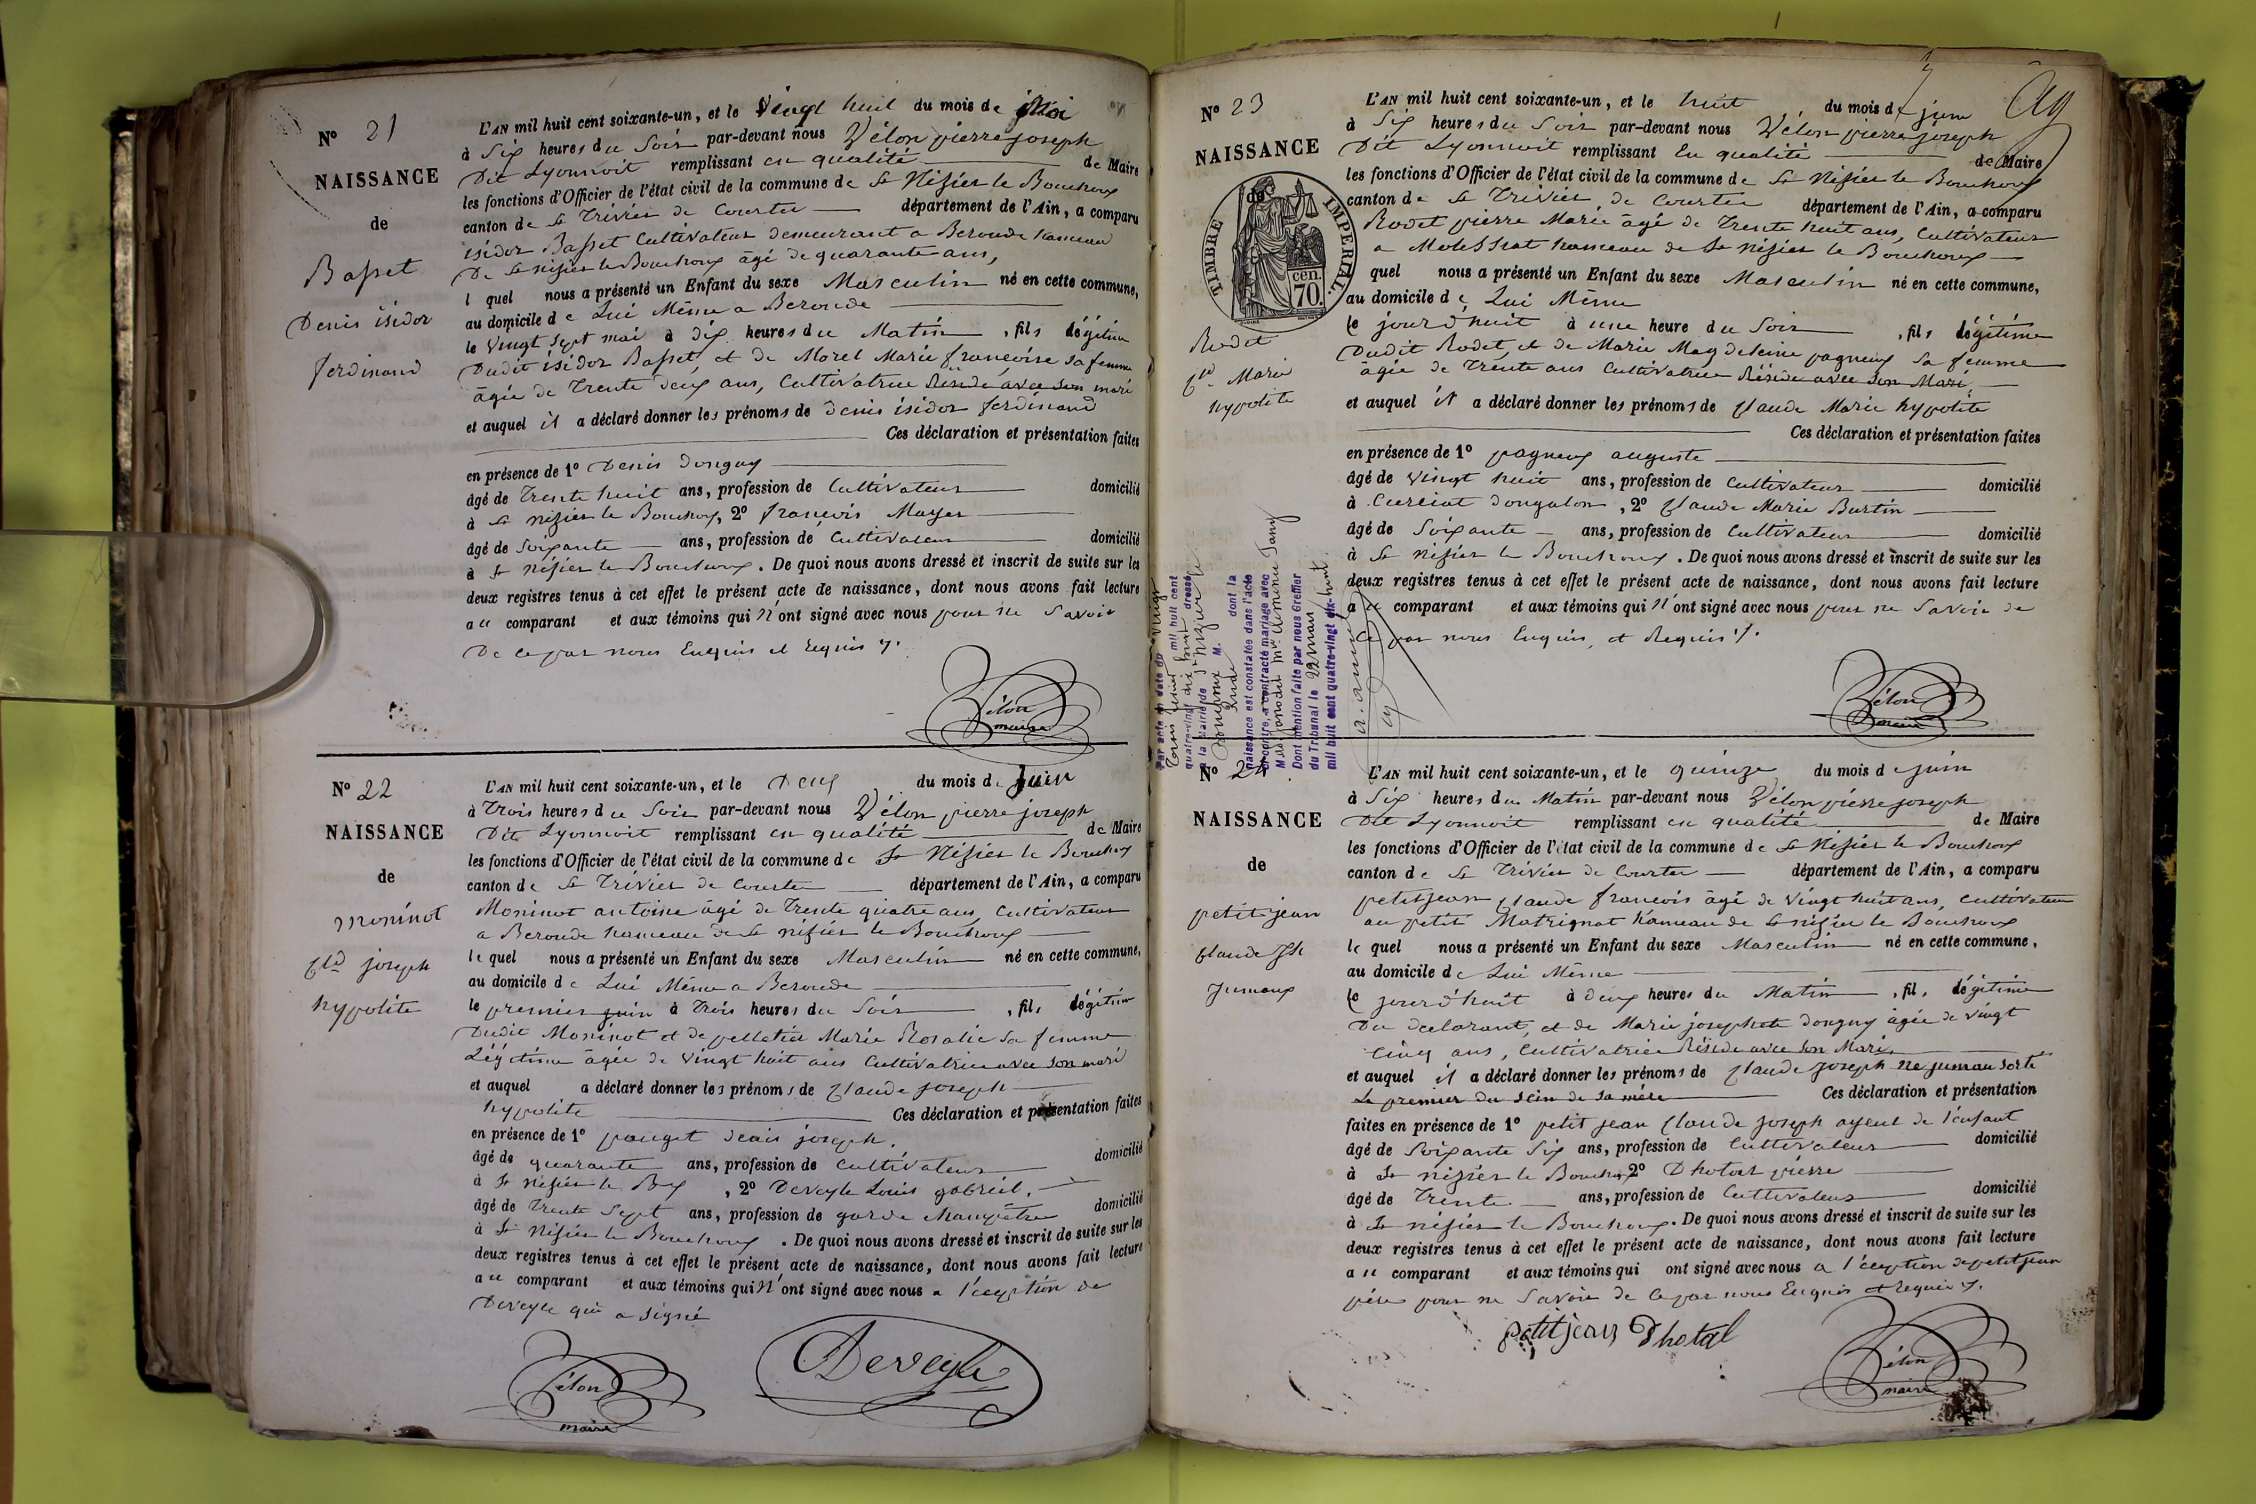 N° 21
NAISSANCE
de
Basset
Denis isidor
ferdinand
L'AN mil huit cent soixante-un, et le Vingt huit du mois de Mai
à Six heures du Soir par-devant nous Vélon pierre joseph
Dit Lyonnoit remplissant en qualité de Maire
les fonctions d'Officier de l'état civil de la commune de St Nizier le Bouchoux
canton de St Trivier de Courtes département de l'Ain, a comparu
isidor Basset Cultivateur demeurant a Beroude hameau
De St nizier le Bouchoux âgé de quarante ans,
lequel nous a présenté un Enfant du sexe Masculin né en cette commune,
au domicile de Lui Même a Beroude
le vingt Sept mai à dix heures du Matin, fils légitime
Dudit isidor Basset, et de Morel Marie françoise sa femme
âgée de Trente deux ans, Cultivatrice Réside avec son mari
et auquel il a déclaré donner les prénoms de denis isidor ferdinand
Ces déclaration et présentation faites
en présence de 1° Denis Donguy
âgé de Trente huit ans, profession de Cultivateur domicilié
à St nizier le Bouchoux, 2° françois Mayer
âgé de Soixante ans, profession de Cultivateur domicilié
à St nizier le Bouchoux. De quoi nous avons dressé et inscrit de suite sur les
deux registres tenus à cet effet le présent acte de naissance, dont nous avons fait lecture
au comparant et aux témoins qui N'ont signé avec nous pour ne Savoir
De ce par nous Enquis et requis ./.
Vélon
maire
N° 22
NAISSANCE
de
Moninot
Cld joseph
hypolite
L'AN mil huit cent soixante-un, et le Deux du mois de Juin
à Trois heures du Soir par-devant nous Vélon pierre joseph
Dit Lyonnoit remplissant en qualité de Maire
les fonctions d'Officier de l'état civil de la commune de St Nizier le Bouchoux
canton de St Trivier de Courtes département de l'Ain, a comparu
Moninot antoine âgé de Trente quatre ans Cultivateur
a Beroude hameau de St nizier le Bouchoux
lequel nous a présenté un Enfant du sexe Masculin né en cette commune,
au domicile de Lui Même a Beroude
le premier juin à Trois heures du Soir, fils légitime
Dudit Moninot et de pelletier Marie Rosalie sa femme
Légitime âgée de vingt huit ans Cultivatrice avec son mari
et auquel a déclaré donner les prénoms de Claude joseph
hypolite Ces déclaration et présentation faites
en présence de 1° pauget denis joseph,
âgé de quarante ans, profession de Cultivateur domicilié
à St nizier le Bx, 2° Deveyle Louis gabriel,
âgé de Trente Sept ans, profession de garde champêtre domicilié
à St Nizier le Bouchoux. De quoi nous avons dressé et inscrit de suite sur les
deux registres tenus à cet effet le présent acte de naissance, dont nous avons fait lecture
au comparant et aux témoins qui N'ont signé avec nous a l'exeption de
Deveyle qui a signé
Vélon
maire
Deveyle
N° 23
NAISSANCE
de
TIMBRE IMPERIAL
cen.
70.
Rodet
Cld Marie
hypolite
L'AN mil huit cent soixante-un, et le huit du mois de juin
à Six heures du Soir par-devant nous Vélon pierre joseph
Dit Lyonnoit remplissant En qualité de Maire
les fonctions d'Officier de l'état civil de la commune de St Nizier le Bouchoux
canton de St Trivier de Courtes département de l'Ain, a comparu
Rodet pierre Marie âgé de Trente huit ans, Cultivateur
a hameau de St Nizier le Bouchoux
quel nous a présenté un Enfant du sexe Masculin né en cette commune,
au domicile de Lui Même
le jourd'huit à une heure du Soir, fils légitime
Dudit Rodet, et de Marie Magdeleine pagneux sa femme
âgée de Trente ans Cultivatrice Réside avec son Mari,
et auquel il a déclaré donner les prénoms de Claude Marie hypolite
Ces déclaration et présentation faites
en présence de 1° pagneux auguste
âgé de vingt huit ans, profession de Cultivateur domicilié
à Curciat dongalon, 2° Claude Marie Burtin
âgé de Soixante ans, profession de Cultivateur domicilié
à St Nizier le Bouchoux. De quoi nous avons dressé et inscrit de suite sur les
deux registres tenus à cet effet le présent acte de naissance, dont nous avons fait lecture
au comparant et aux témoins qui N'ont signé avec nous pour ne Savoir de
Ce par nous Enquis, et Requis ./.
Vélon
maire
Par acte en date du vingt
mil huit cent
quatre-vingt dix huit dressé
à la Mairie de St Nizier le
Bouchoux M. dont la
naissance est constatée dans l'acte
ci-contre, a contracté mariage avec
Dont mention faite par nous Greffier
du Tribunal le 22 mars
mil huit cent quatre-vingt dix-huit
N° 24
NAISSANCE
de
petitjean
Claude Jh
Jumeaux
L'AN mil huit cent soixante-un, et le quinze du mois de juin
à Six heures du Matin par-devant nous Vélon pierre joseph
Dit Lyonnoit remplissant en qualité de Maire
les fonctions d'Officier de l'état civil de la commune de St Nizier le Bouchoux
canton de St Trivier de Courtes département de l'Ain, a comparu
petitjean Claude francois âgé de vingt huit ans, cultivateur
au petit Matrignat hameau de St nizier le Bouchoux
le quel nous a présenté un Enfant du sexe Masculin né en cette commune,
au domicile de Lui Même
le jourd'huit à deux heures du Matin, fils légitime
Du declarant, et de Marie josephete donguy âgée de vingt
Cinq ans, Cultivatrice Réside avec son Mari,
et auquel il a déclaré donner les prénoms de Claude joseph ne jumau sorte
Le premier du sein de sa mère Ces déclaration et présentation
faites en présence de 1° petit jean Claude joseph ayeul de l'enfant
âgé de Soixante Six ans, profession de Cultivateur domicilié
à St nizier le Bouchoux, 2° Dhotal pierre
âgé de Trente ans, profession de Cultivateur domicilié
à St nizier le Bouchoux. De quoi nous avons dressé et inscrit de suite sur les
deux registres tenus à cet effet le présent acte de naissance, dont nous avons fait lecture
au comparant et aux témoins qui ont signé avec nous a l'exeption de petitjean
père pour ne Savoir de ce par nous Enquis et requis ./.
petitjean Dhotal
Vélon
maire